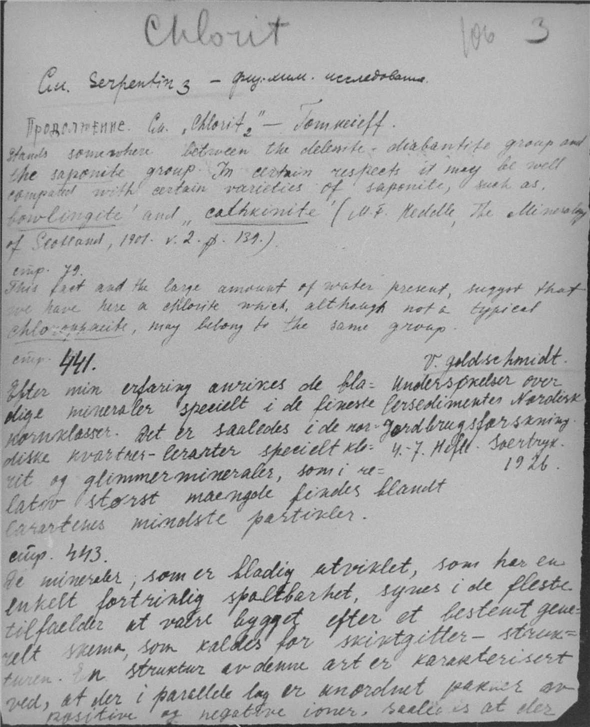 Chlorit
106 3
См. Serpentin 3 — физ.-хим. исследования.
Продолжение. См. „Chlorit 2" — Tomkeieff.
stands somewhere between the delessite-diabantite group and
the saponite group. In certain respects it may be well
compared with certain varieties of saponite, such as,
bowlingite' and „cathkinite" (M.F. Heddle, The Mineralogy
of Scotland, 1901. v. 2. p. 139.)
стр. 79.
This fact and the large amount of water present, suggest that
we have here a chlorite which, although not a typical
chlorophaeite, may belong to the same group.
стр. 441.
V. Goldschmidt.
Efter min erfaring anrikes de bla=
dige mineraler specielt i de fineste
kornklasser. Det er saaledes i de nor=
diske kvartær-lerarter specielt klo=
rit og glimmermineraler, som i re=
lativ størst mængde findes blandt
lerartenes mindste partikler.
Undersøkelser over
lersedimenter. Nordisk
Jordbrugsforskning.
4.-7. Heft. Soertryk.
1926.
стр. 443.
De mineraler, som er bladig utviklet, som har en
enkelt fortrinlig spaltbarhet, synes i de fleste
tilfælder at være bygget efter et bestemt gene=
relt skema, som kaldes for skiktgitter-struk=
turen. En struktur av denne art er karakterisert
ved, at der i parallele lag er anordnet pakker av
positive og negative ioner, saaledes at der